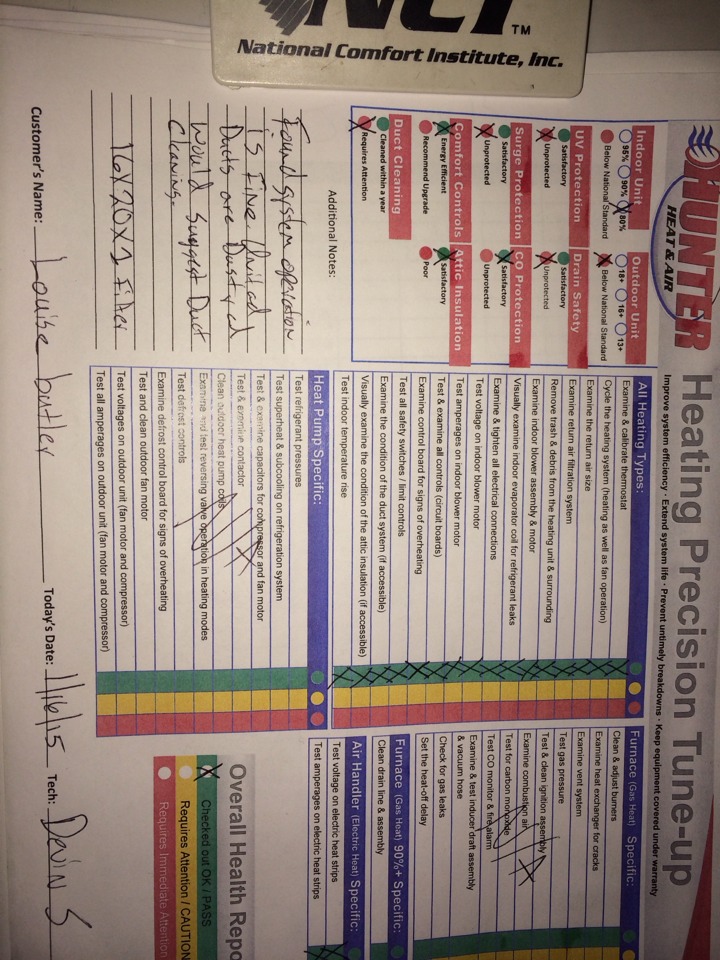 NCI™
National Comfort Institute, Inc.
HUNTER
HEAT & AIR
Heating Precision Tune-up
Improve system efficiency · Extend system life · Prevent untimely breakdowns · Keep equipment covered under warranty
Indoor Unit
95% 90% 80%
Below National Standard
Outdoor Unit
18+ 16+ 13+
Below National Standard
UV Protection
Satisfactory
Unprotected
Drain Safety
Satisfactory
Unprotected
Surge Protection
Satisfactory
Unprotected
CO Protection
Satisfactory
Unprotected
Comfort Controls
Energy Efficient
Recommend Upgrade
Attic Insulation
Satisfactory
Poor
Duct Cleaning
Cleaned within a year
Requires Attention
Additional Notes:
Found system operation
is fine.
Ducts are Dusty
Would suggest Duct
Cleaning.
16x20x1 Filter
All Heating Types:
Examine & calibrate thermostat
Cycle the heating system (heating as well as fan operation)
Examine the return air size
Examine return air filtration system
Remove trash & debris from the heating unit & surrounding
Examine indoor blower assembly & motor
Visually examine indoor evaporator coil for refrigerant leaks
Examine & tighten all electrical connections
Test voltage on indoor blower motor
Test amperages on indoor blower motor
Test & examine all controls (circuit boards)
Examine control board for signs of overheating
Test all safety switches / limit controls
Examine the condition of the duct system (if accessible)
Visually examine the condition of the attic insulation (if accessible)
Test indoor temperature rise
Heat Pump Specific:
Test refrigerant pressures
Test superheat & subcooling on refrigeration system
Test & examine capacitors for compressor and fan motor
Test & examine contactor
Clean outdoor heat pump coils
Examine and test reversing valve operation in heating modes
Test defrost controls
Examine defrost control board for signs of overheating
Test and clean outdoor fan motor
Test voltages on outdoor unit (fan motor and compressor)
Test all amperages on outdoor unit (fan motor and compressor)
Furnace (Gas Heat) Specific:
Clean & adjust burners
Examine heat exchanger for cracks
Examine vent system
Test gas pressure
Test & clean ignition assembly
Examine combustion air
Test for carbon monoxide
Test CO monitor & fire alarm
Examine & test inducer draft assembly
& vacuum hose
Check for gas leaks
Set the heat-off delay
Furnace (Gas Heat) 90%+ Specific:
Clean drain line & assembly
Air Handler (Electric Heat) Specific:
Test voltage on electric heat strips
Test amperages on electric heat strips
Overall Health Repo
Checked out OK / PASS
Requires Attention / CAUTION
Requires Immediate Attention
Customer's Name: Louise butler Today's Date: 1/16/15 Tech: Devin S